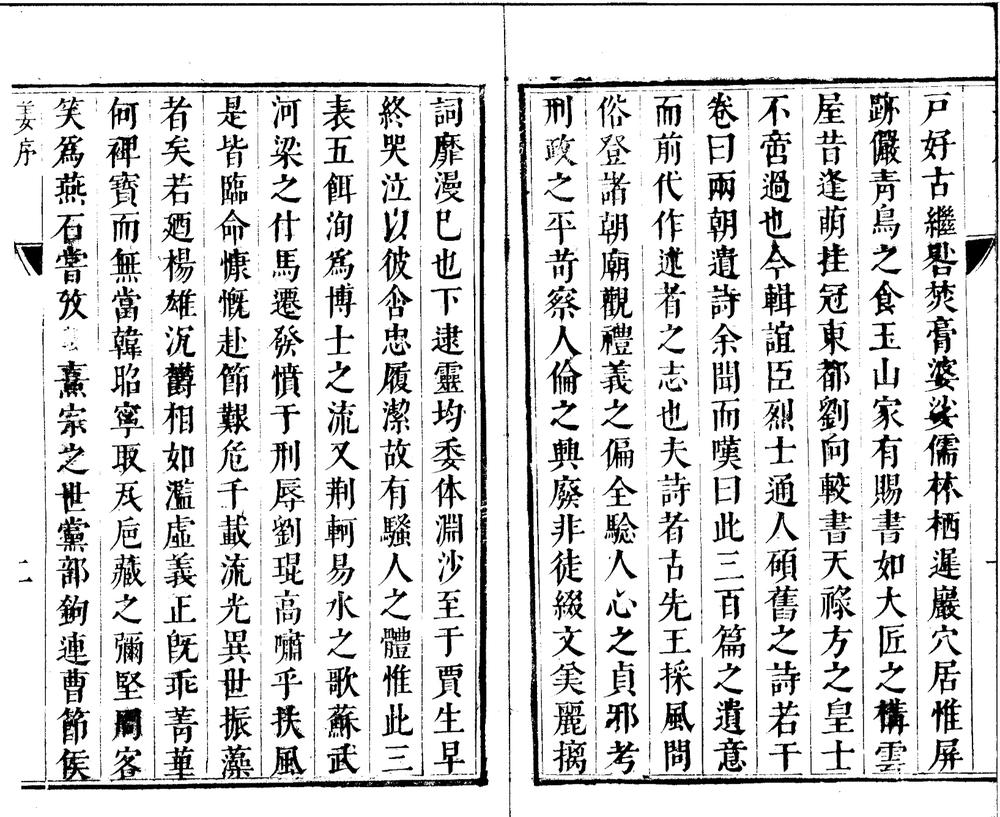 戸好古繼晷焚膏婆娑儒林栖遲巖穴居惟屏
跡儼青鳥之食玉山家有賜書如大匠之構雲
屋昔逢萌挂冠東都劉向較書天祿方之皇士
不啻過也今輯誼臣烈士通人碩舊之詩若干
卷曰兩朝遺詩余聞而嘆曰此三百篇之遺意
而前代作述者之志也夫詩者古先王採風問
俗登諸朝廟觀禮義之偏全驗人心之貞邪考
刑政之平苛察人倫之興廢非徒綴文美麗摛
詞靡漫已也下逮靈均委体淵沙至于賈生早
終哭泣以彼含忠履潔故有騷人之體惟此三
表五餌洵爲博士之流又荆軻易水之歌蘇武
河梁之什馬遷發憤于刑辱劉琨高嘯乎扶風
是皆臨命慷慨赴節艱危千載流光異世振藻
者矣若廼楊雄沉欝相如濫虛義正既乖菁華
何裨寶而無當韓昭寧取瓦巵藏之彌堅周客
笑爲燕石嘗攷熹宗之世黨部鉤連曹節侯
姜序
二